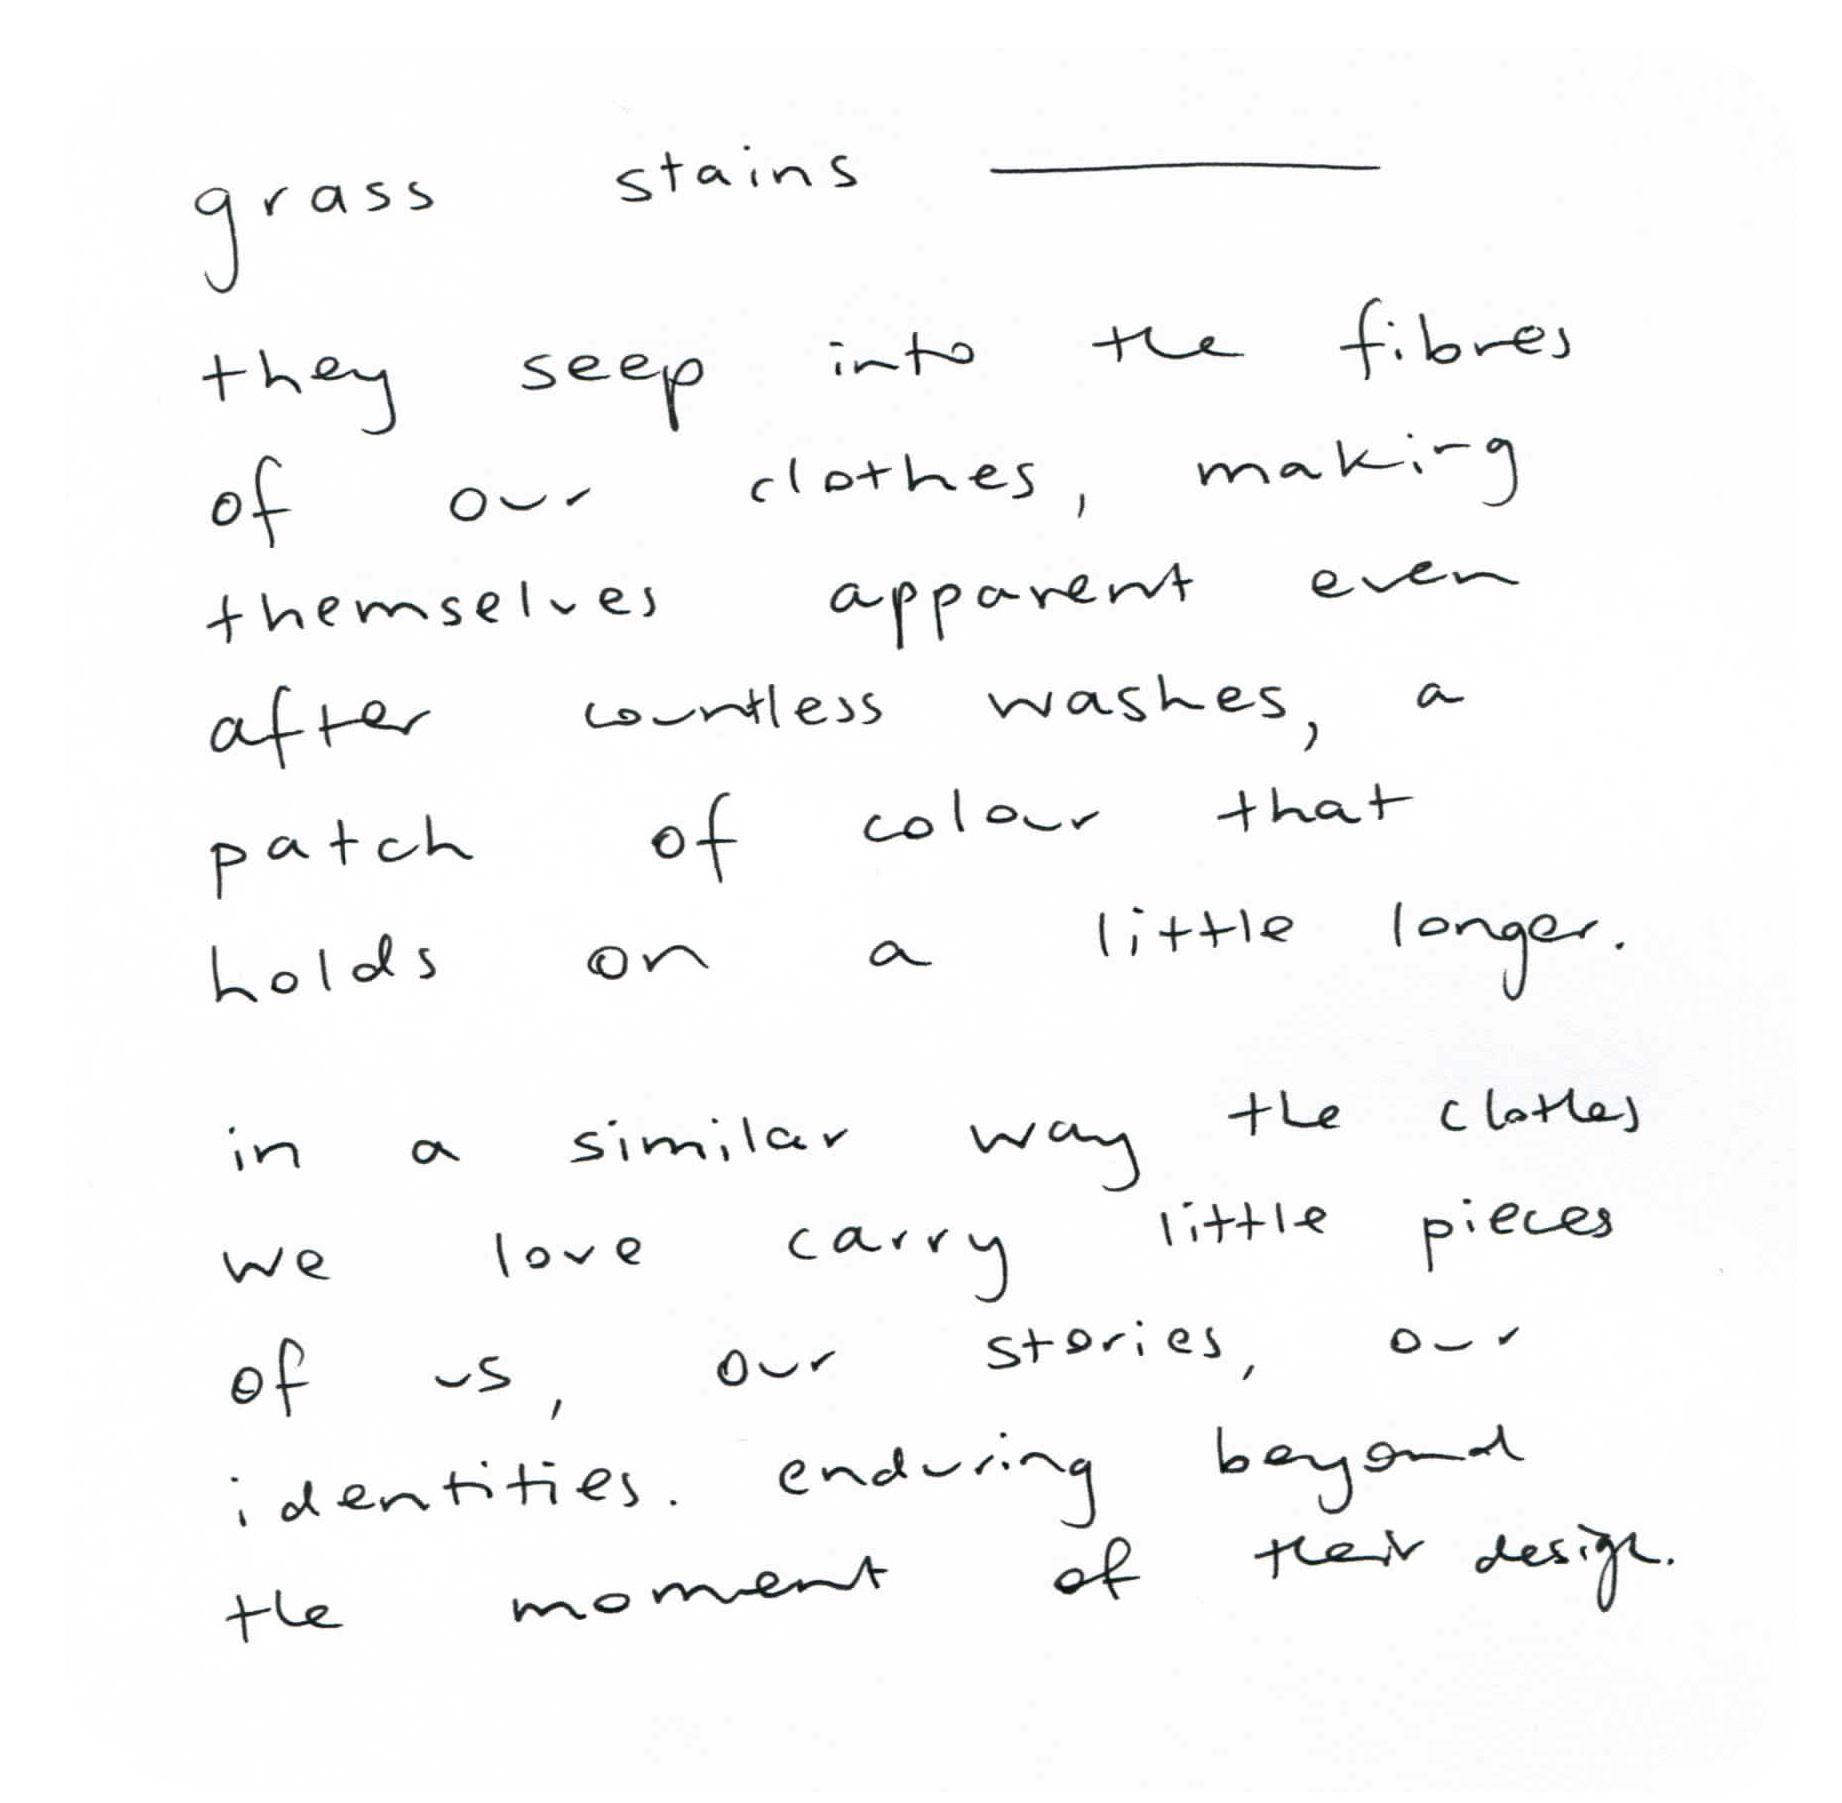 grass stains ———
they seep into the fibres
of our clothes, making
themselves apparent even
after countless washes, a
patch of colour that
holds on a little longer.
in a similar way the clothes
we love carry little pieces
of us, our stories, our
identities. enduring beyond
the moment of their design.